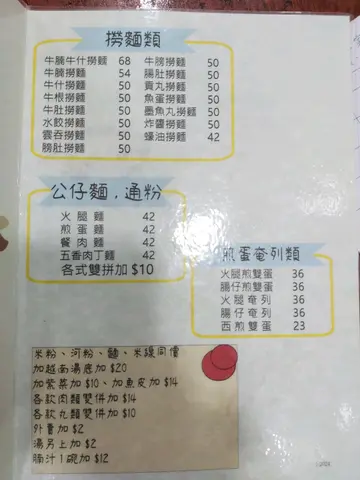 撈麵類
牛腩牛什撈麵 68
牛腩撈麵 54
牛什撈麵 50
牛根撈麵 50
牛肚撈麵 50
水餃撈麵 50
雲吞撈麵 50
膀肚撈麵 50
牛膀撈麵 50
腸肚撈麵 50
貢丸撈麵 50
魚蛋撈麵 50
墨魚丸撈麵 50
炸醬撈麵 50
蠔油撈麵 42
公仔麵.通粉
火腿麵 42
煎蛋麵 42
餐肉麵 42
五香肉丁麵 42
各式雙拼加 $10
煎蛋奄列類
火腿煎雙蛋 36
腸仔煎雙蛋 36
火腿奄列 36
腸仔奄列 36
西煎雙蛋 23
米粉、河粉、麵、米線同價
加越南湯底加 $20
加紫菜加 $10、加魚皮加 $14
各款肉類雙併加 $14
各款丸類雙併加 $10
外賣加 $2
湯另上加 $2
腩汁1碗加 $12